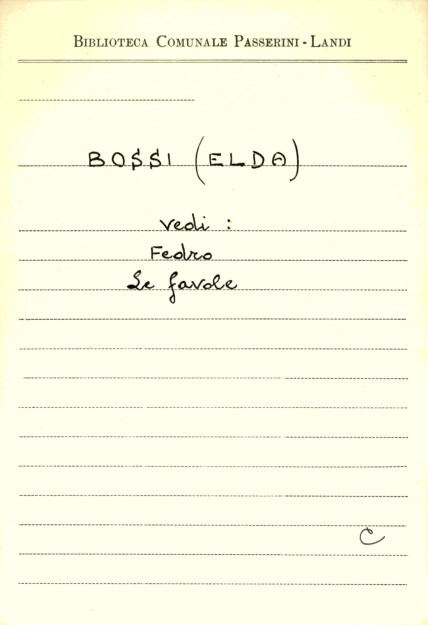 BIBLIOTECA COMUNALE PASSERINI - LANDI
BOSSI (ELDA)
vedi :
Fedro
Le favole
C